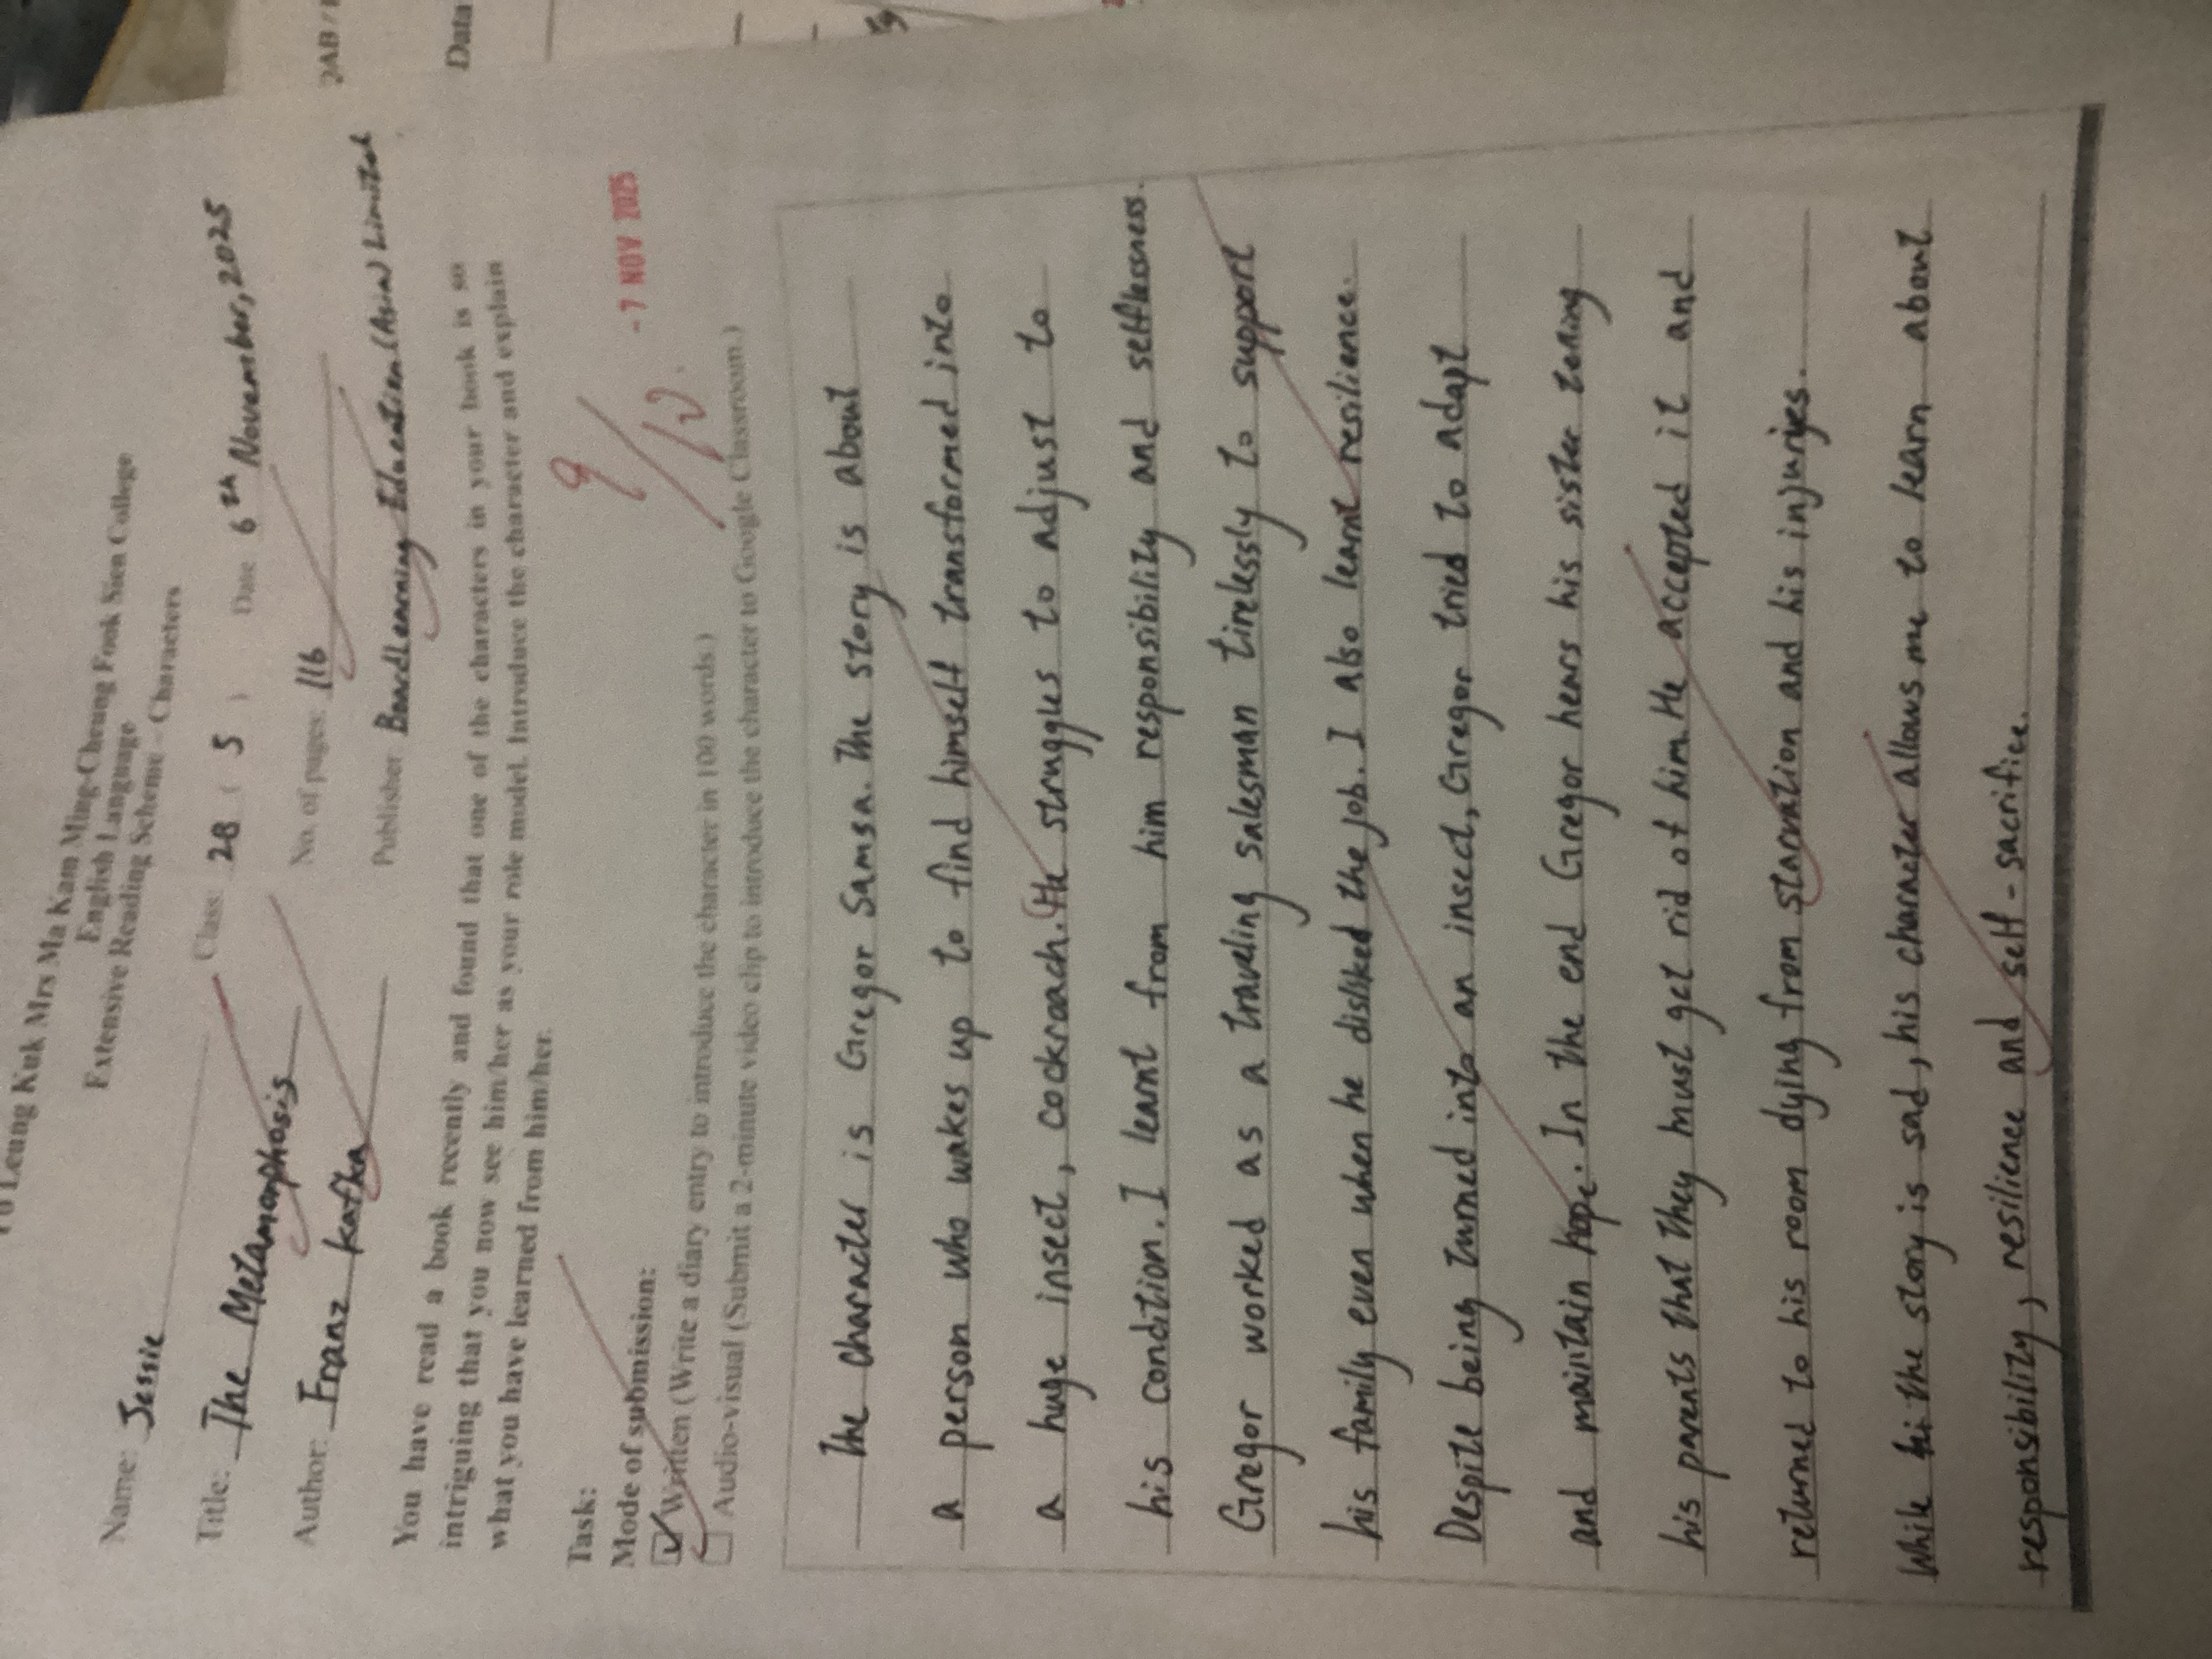 Leung Kuk Mrs Ma Kam Ming-Cheung Fook Sien College
English Language
Extensive Reading Scheme - Characters
Name: Jessie Class: 2B ( 5 ) Date 6th November, 2025
Title: The Metamorphosis No. of pages: 116
Author: Franz Kafka Publisher: Learning Education (Asia) Limited
You have read a book recently and found that one of the characters in your book is so
intriguing that you now see him/her as your role model. Introduce the character and explain
what you have learned from him/her.
9/10.
- 7 NOV 2025
Task:
Mode of submission:
Written (Write a diary entry to introduce the character in 100 words)
Audio-visual (Submit a 2-minute video clip to introduce the character to Google Classroom.)
The character is Gregor Samsa. The story is about
a person who wakes up to find himself transformed into
a huge insect, cockroach. He struggles to adjust to
his condition. I learnt from him responsibility and selflessness.
Gregor worked as a traveling salesman tirelessly to support
his family even when he disliked the job. I also learnt resilience.
Despite being turned into an insect, Gregor tried to adapt
and maintain hope. In the end Gregor hears his sister telling
his parents that they must get rid of him. He accepted it and
returned to his room dying from starvation and his injuries.
While the story is sad, his character allows me to learn about
responsibility, resilience and self-sacrifice.
2AB /
Data